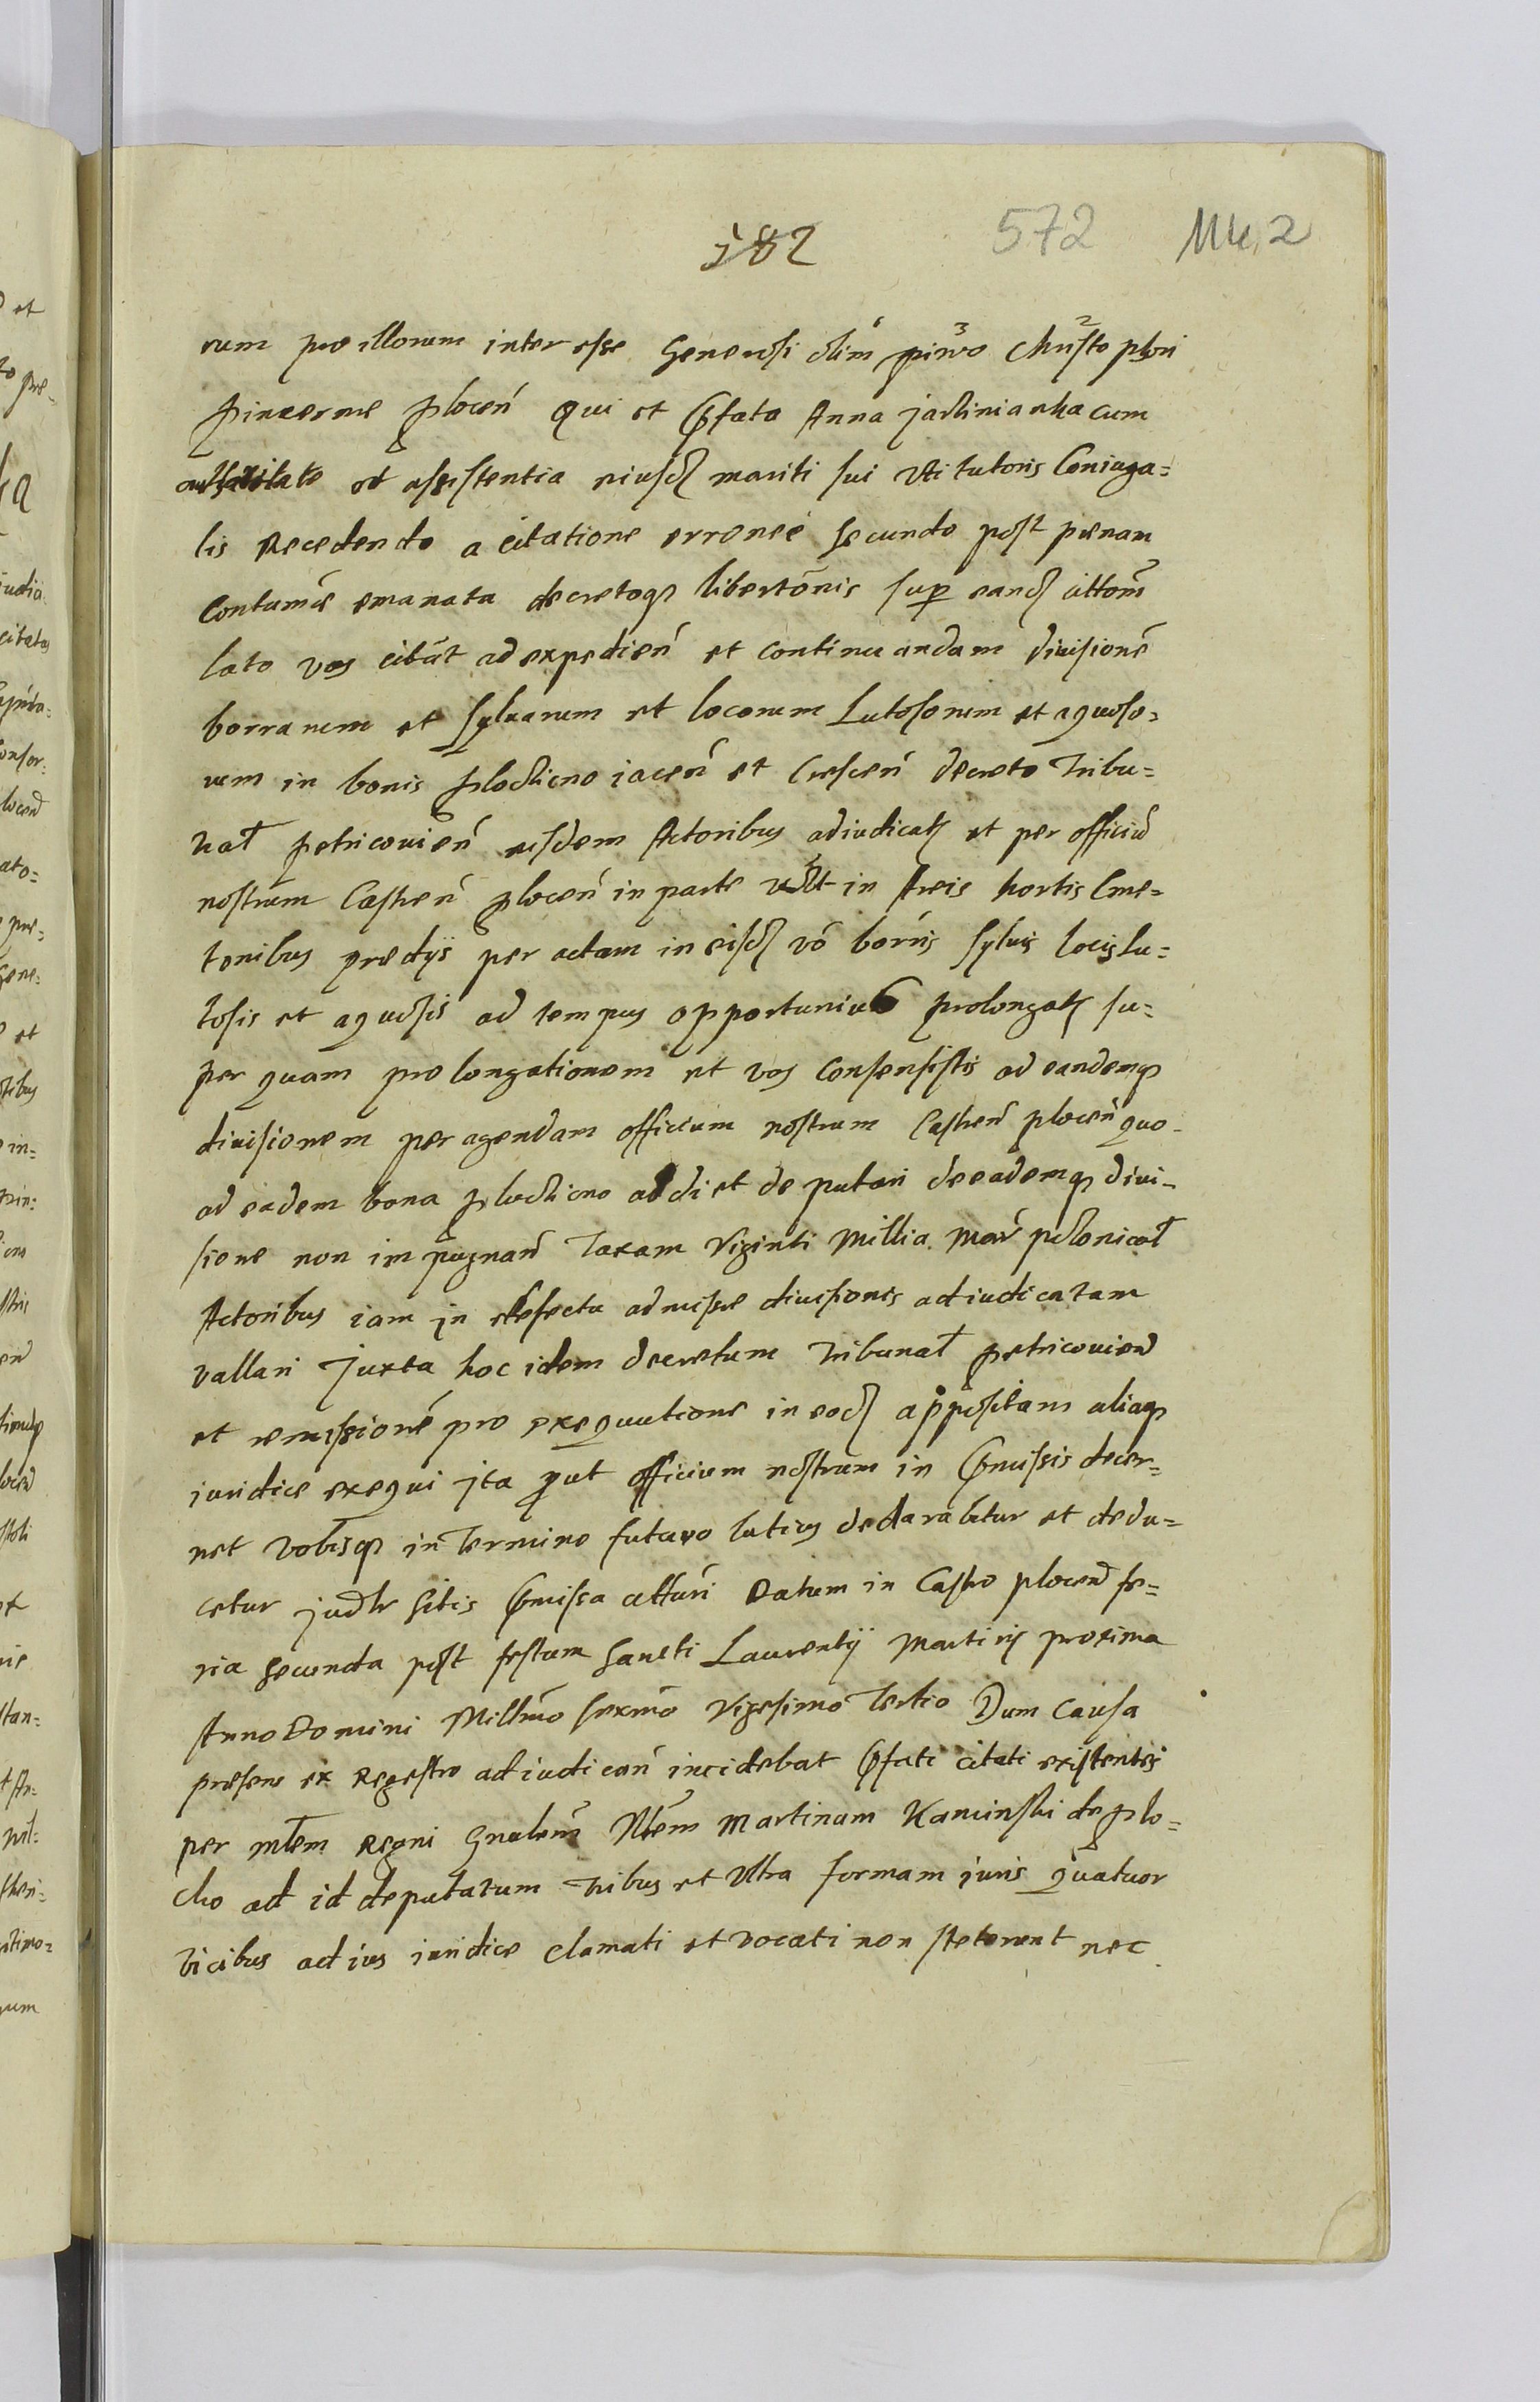 582 572 114, 2
rum pro illorum interesse Generosi olim pivo Christophori
pincerne plocen̄ qui et p̄fata Anna jactinianka cum
authoritate et assistentia eiusd mariti sui uti tutoris Coniuga=
lis Recedendo a citatione erroneè secundo post penam
Contumē emanata decretoq libertōnis sup eand cittom̄
lato vos citāt ad expedien̄ et continuandam divisionē
borrarum et sylvarum et locorum Lutosorum et aquoso=
rum in bonis plochcno iacen̄ et Crescen̄ decreto Tribu=
nal petricovien̄ eisdem Actoribus adiudicat et per officiū
nostrum Castren̄ plocen̄ in parte in Areis hortis Cme=
tonibus predijs per actam in eisd vō borris sylvis locis lu=
tosis et aquosis ad tempus opportunius prolongat su=
per quam prolongationem et vos Consensistis ad eandemq
divisionem peragendam officium nostrum Castren̄ plocen̄ quo=
ad eadem bona plochcno addi et deputari de eademq divi=
sione non impugnan̄ Taxam Viginti Millia Mar̄ polonical
Actoribus iam in defectu admissæ divisionis adiudicatam
vallari Juxta hoc idem decretum Tribunal petricovien̄
et remissionē pro exequutione in eod appositam aliaq
iuridice exequi Ita prout officium nostrum in p̄missis decer=
net vobisq in Termino futuro latius declarabitur et dedu=
cetur judr sitis p̄missa atturi Datum in Castro plocen̄ fe=
ria secunda post festum Sancti Laurentij Martiris proxima
Anno Domini Millmo sexmo Vigesimo Tertio Dum Causa
præsens ex Regestro adiudican̄ incidebat p̄fati citati existentes
per mlem Regni Gnalem Nlem Martinum Kaminski de plo=
cko ad id deputatum Tribus et Ultra formam juris quatuor
vicibus ad ius iuridice clamati et vocati non steterunt nec